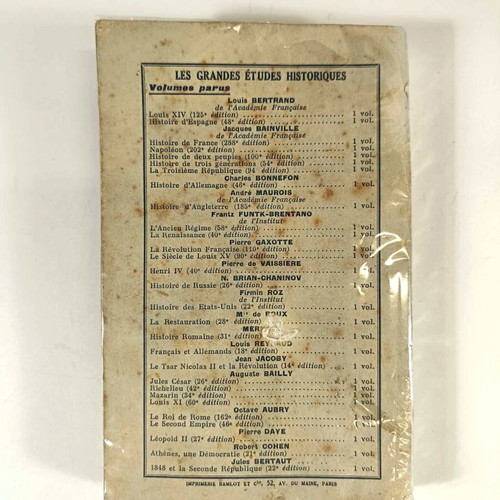 LES GRANDES ÉTUDES HISTORIQUES
Volumes parus
Louis BERTRAND
de l'Académie Française
Louis XIV (125e édition) 1 vol.
Histoire d'Espagne (48e édition) 1 vol.
Jacques BAINVILLE
de l'Académie Française
Histoire de France (258e édition) 1 vol.
Napoléon (202e édition) 1 vol.
Histoire de deux peuples (100e édition) 1 vol.
Histoire de trois générations (54e édition) 1 vol.
La Troisième République (94 édition) 1 vol.
Charles BONNEFON
Histoire d'Allemagne (46e édition) 1 vol.
André MAUROIS
de l'Académie Française
Histoire d'Angleterre (185e édition) 1 vol.
Frantz FUNTK-BRENTANO
de l'Institut
L'Ancien Régime (58e édition) 1 vol.
La Renaissance (40e édition) 1 vol.
Pierre GAXOTTE
La Révolution Française (110e édition) 1 vol.
Le Siècle de Louis XV (90e édition) 1 vol.
Pierre de VAISSIÈRE
Henri IV (40e édition) 1 vol.
N. BRIAN-CHANINOV
Histoire de Russie (26e édition) 1 vol.
Firmin ROZ
de l'Institut
Histoire des Etats-Unis (22e édition) 1 vol.
Mis de ROUX
La Restauration (28e édition) 1 vol.
Histoire Romaine (31e édition) 1 vol.
Louis REYNAUD
Français et Allemands (18e édition) 1 vol.
Jean JACOBY
Le Tsar Nicolas II et la Révolution (14e édition) 1 vol.
Auguste BAILLY
Jules César (26e édition) 1 vol.
Richelieu (42e édition) 1 vol.
Mazarin (34e édition) 1 vol.
Louis XI (60e édition) 1 vol.
Octave AUBRY
Le Roi de Rome (162e édition) 1 vol.
Le Second Empire (46e édition) 1 vol.
Pierre DAYE
Léopold II (27e édition) 1 vol.
Robert COHEN
Athènes, une Démocratie (21e édition) 1 vol.
Jules BERTAUT
1848 et la Seconde République (22e édition) 1 vol.
IMPRIMERIE RAMLOT ET Cie, 52, AV. DU MAINE, PARIS